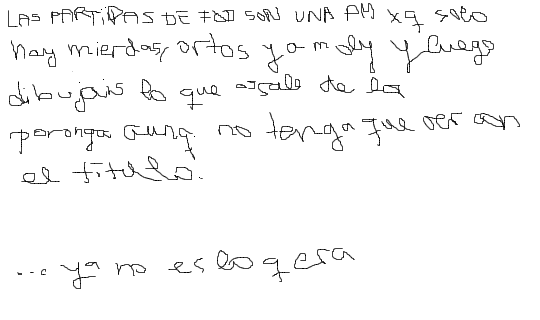 LAS PARTIDAS DE SON UNA xq solo
hay mierdas, ortos y a moly y luego
dibujais lo que os sale de la
poronga aunq no tenga que ver con
el titulo.
... ya no es lo q era